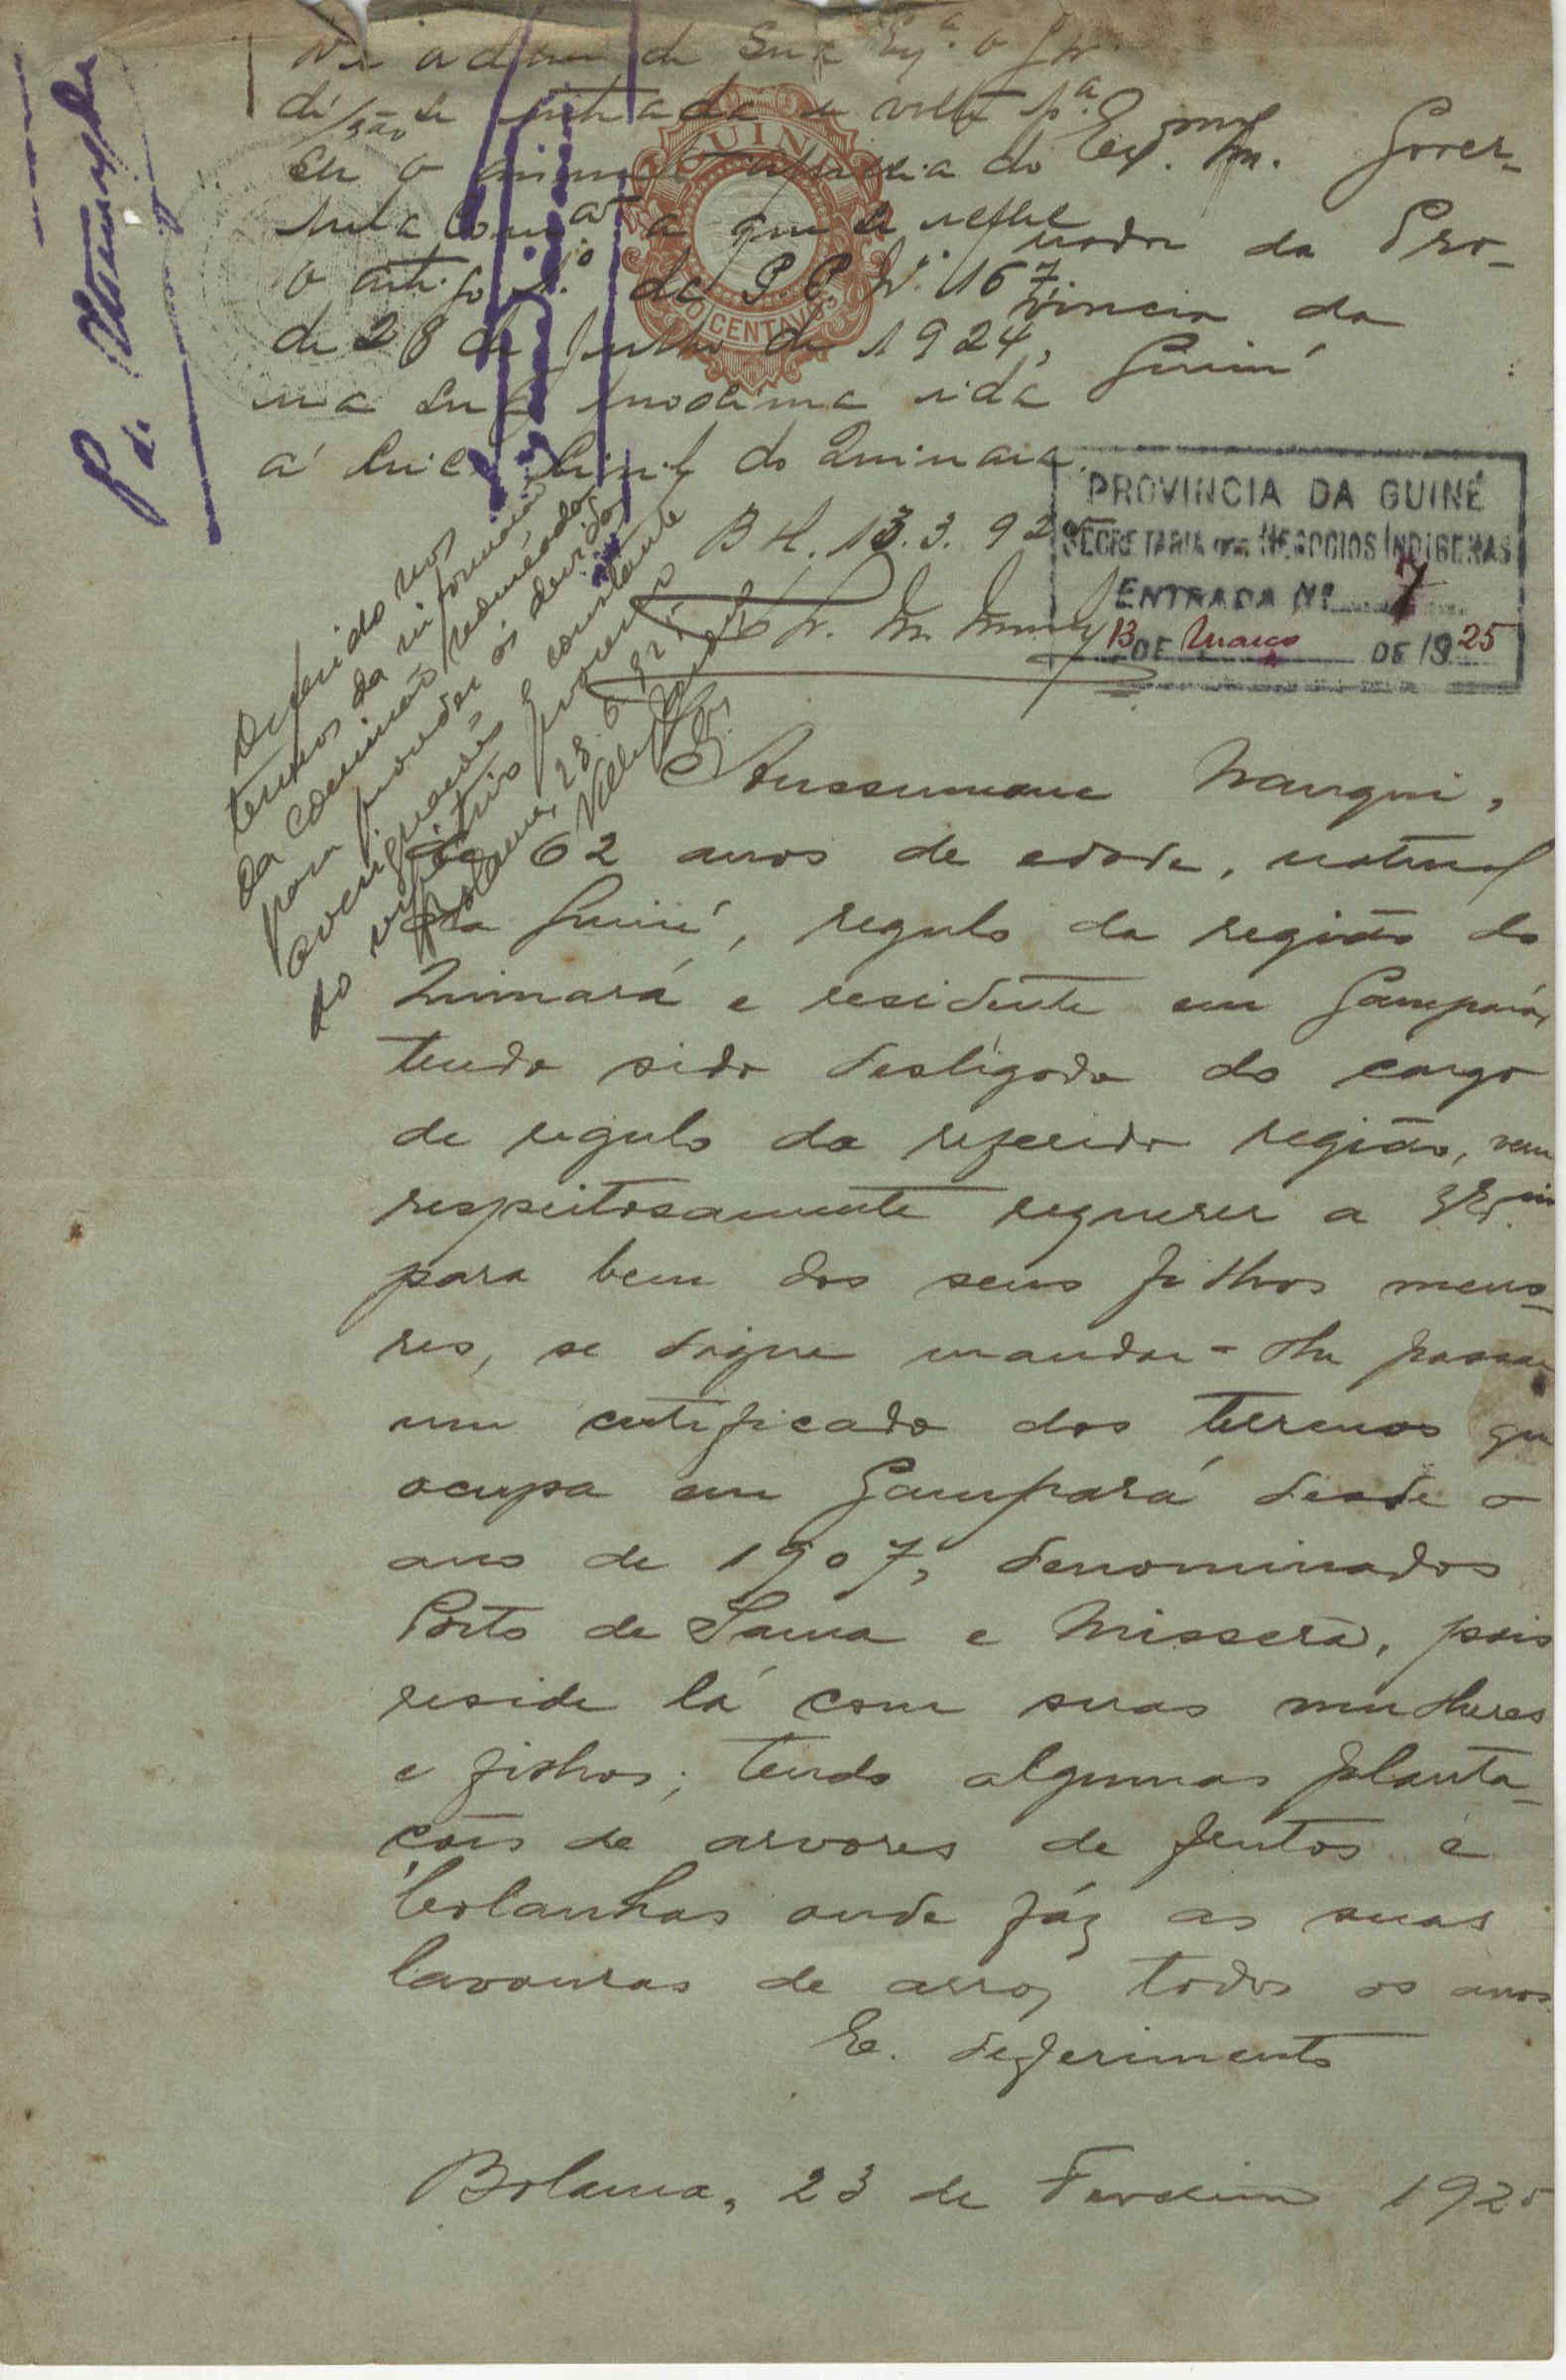 de Sua Exª. o Sr.
de entrada e volte pª.
Exmo. Sr. Gover-
nador da Pro-
vincia da
Guiné
a que se refere
o artigo 1.º do P. P. Nº. 167,
de 28 de Julho de 1924,
na sua proxima ida
á Circ. Civil de Quinara.
13.3.92
GUINÉ
CENTAVOS
PROVINCIA DA GUINÉ
SECRETARIA DOS NEGOCIOS INDIGENAS
ENTRADA Nº 7
13 DE Março DE 1925
Deferido nos
termos da informação
da comissão nomeada
para proceder ás devidas
averiguações e constante
do respectivo processo
Bolama, 23.6.925
Aussumane Mangui,
de 62 anos de edade, natural
da Guiné, regulo da região de
Quinará e residente em Gampará,
tendo sido desligado do cargo
de regulo da referida região, vem
respeitosamente requerer a V. Exª.
para bem dos seus filhos meno-
res, se digne mandar-lhe passar
um certificado dos terrenos que
ocupa em Gampará desde o
ano de 1907, denominados
Porto de Sama e Misserá, pois
reside lá com suas mulheres
e filhos; tendo algumas planta-
ções de arvores de frutos e
bolanhas onde fáz as suas
lavouras de arroz todos os anos
E. deferimento
Bolama, 23 de Fevereiro 1925